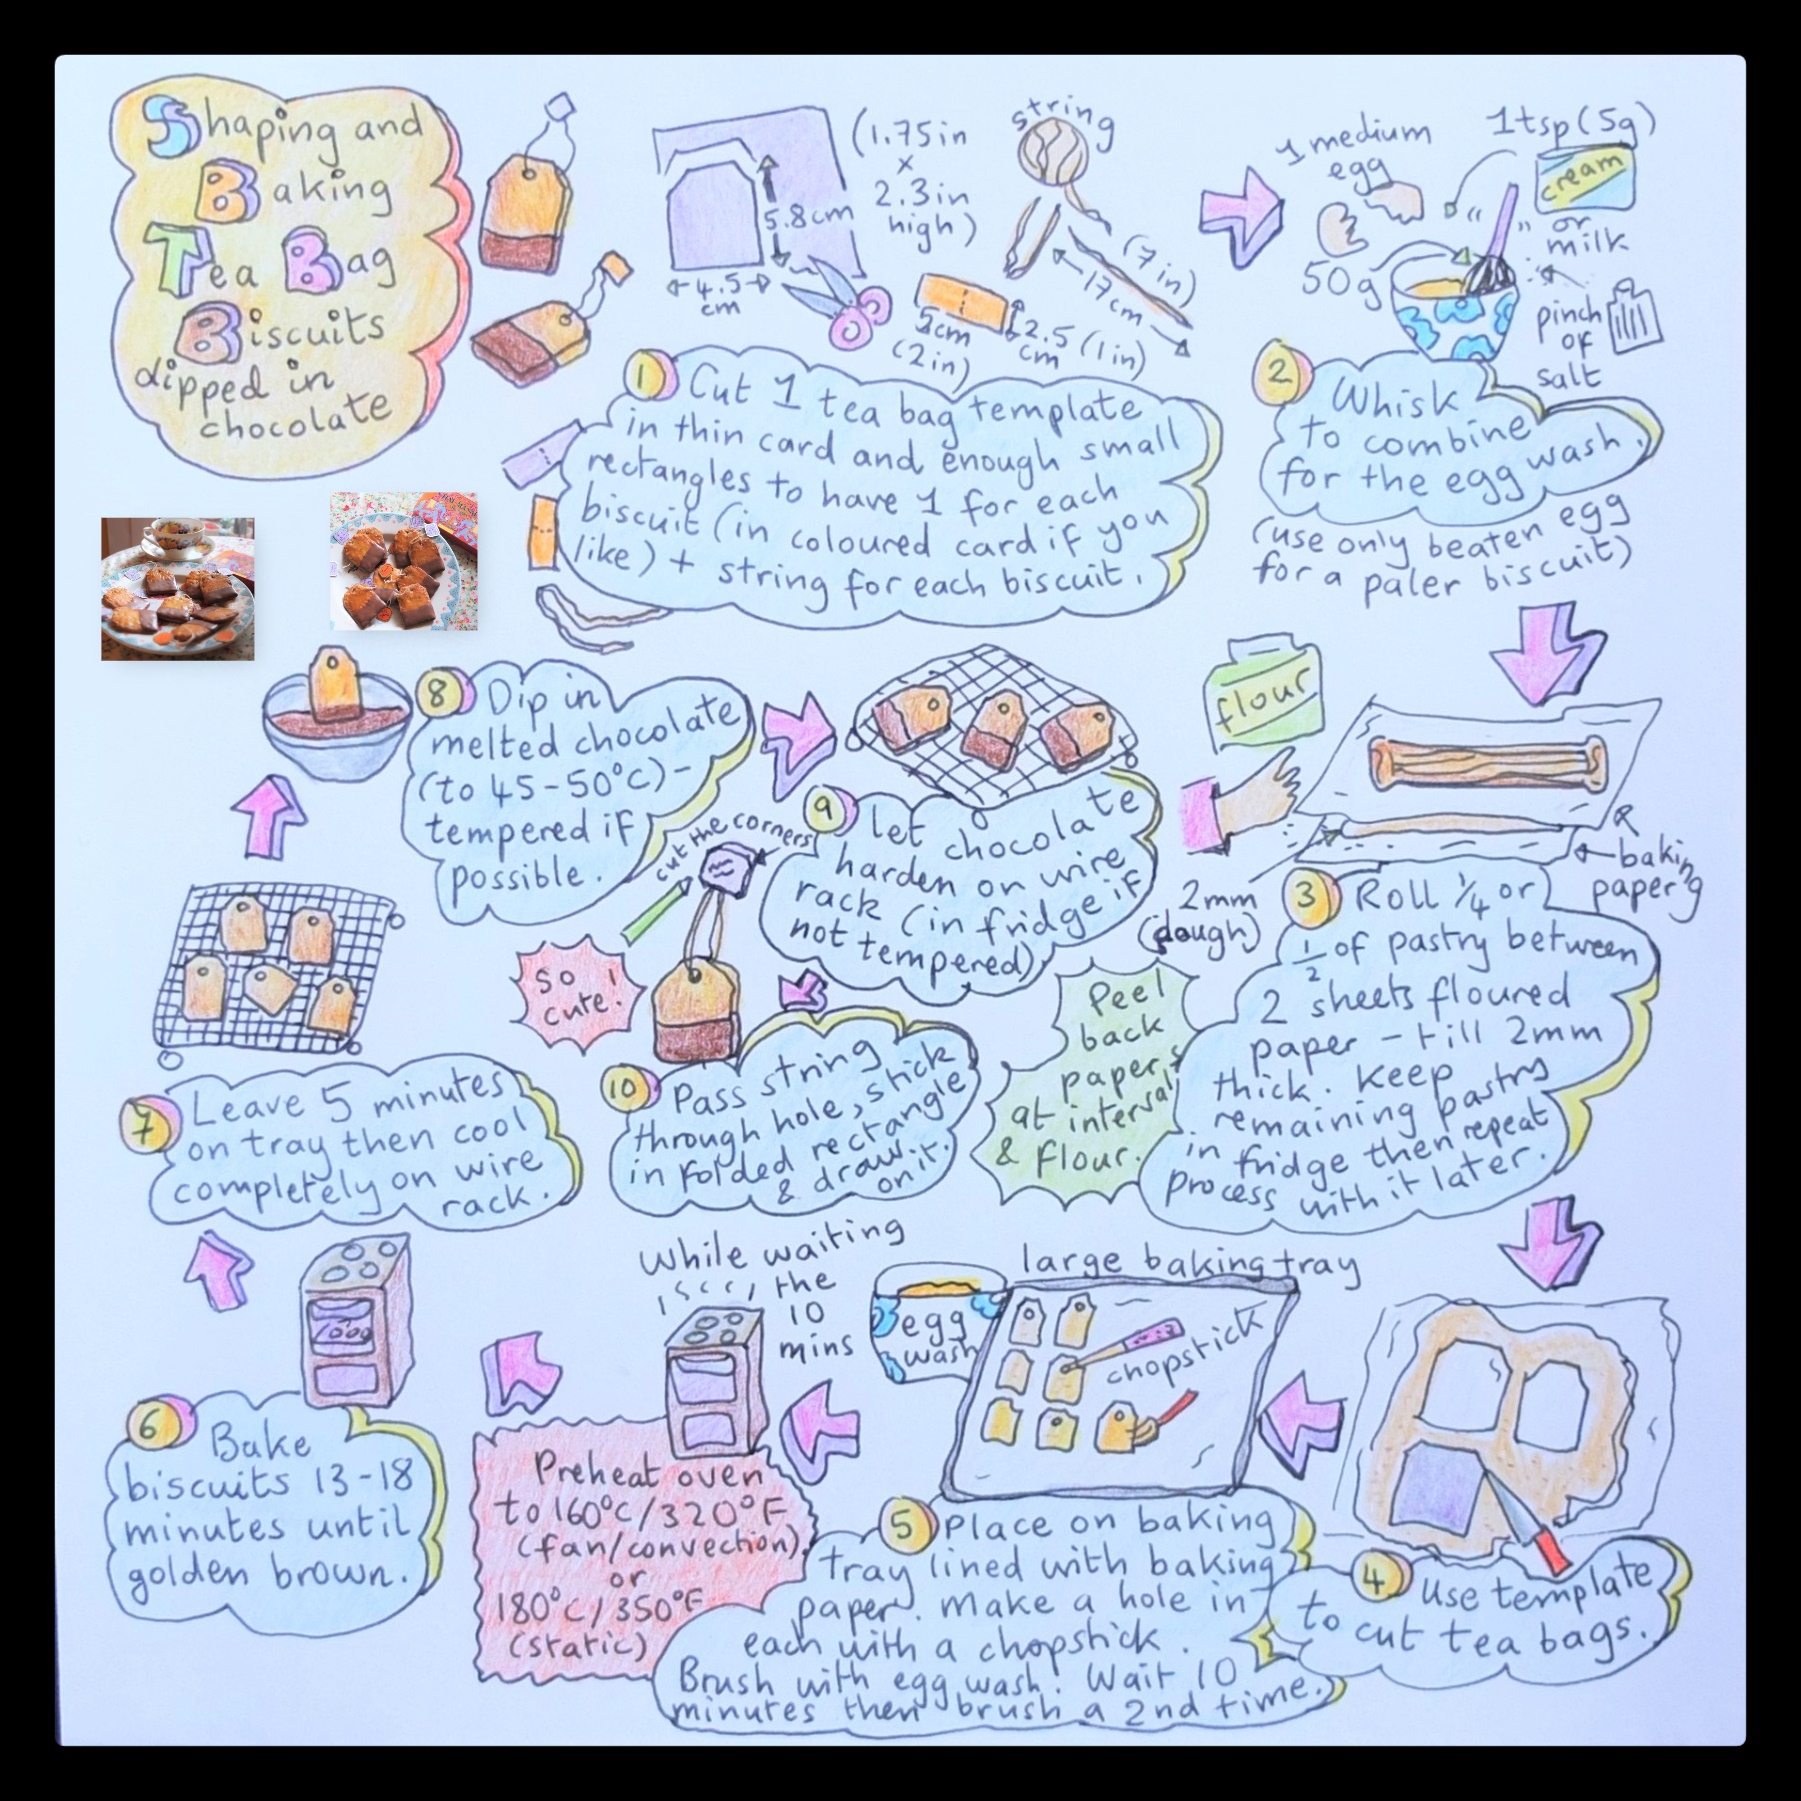 Shaping and
Baking
Tea Bag
Biscuits
dipped in
chocolate
5.8cm
4.5
cm
(1.75in
x
2.3in
high)
string
(7in)
17cm
5cm
(2in)
2.5
cm
(1in)
1 Cut 1 tea bag template
in thin card and enough small
rectangles to have 1 for each
biscuit (in coloured card if you
like) + string for each biscuit.
1 medium
egg
50g
1tsp (5g)
cream
or
milk
pinch
of
salt
2 Whisk
to combine
for the egg wash.
(use only beaten egg
for a paler biscuit)
flour
2mm
(dough)
baking
paper
3 Roll 1/4 or
1/2 of pastry between
2 sheets floured
paper - till 2mm
thick. Keep
remaining pastry
in fridge then repeat
process with it later.
Peel
back
papers
at interval
& flour.
4 Use template
to cut tea bags.
large baking tray
egg
wash
chopstick
5 Place on baking
tray lined with baking
paper. Make a hole in
each with a chopstick.
Brush with egg wash. Wait 10
minutes then brush a 2nd time.
While waiting
the
10
mins
Preheat oven
to 160°C/320°F
(fan/convection)
or
180°C/350°F
(static)
6 Bake
biscuits 13-18
minutes until
golden brown.
7 Leave 5 minutes
on tray then cool
completely on wire
rack.
8 Dip in
melted chocolate
(to 45-50°C)-
tempered if
possible.
9 let chocolate
harden on wire
rack (in fridge if
not tempered)
cut the corners
So
cute!
10 Pass string
through hole, stick
in folded rectangle
& draw
on it.